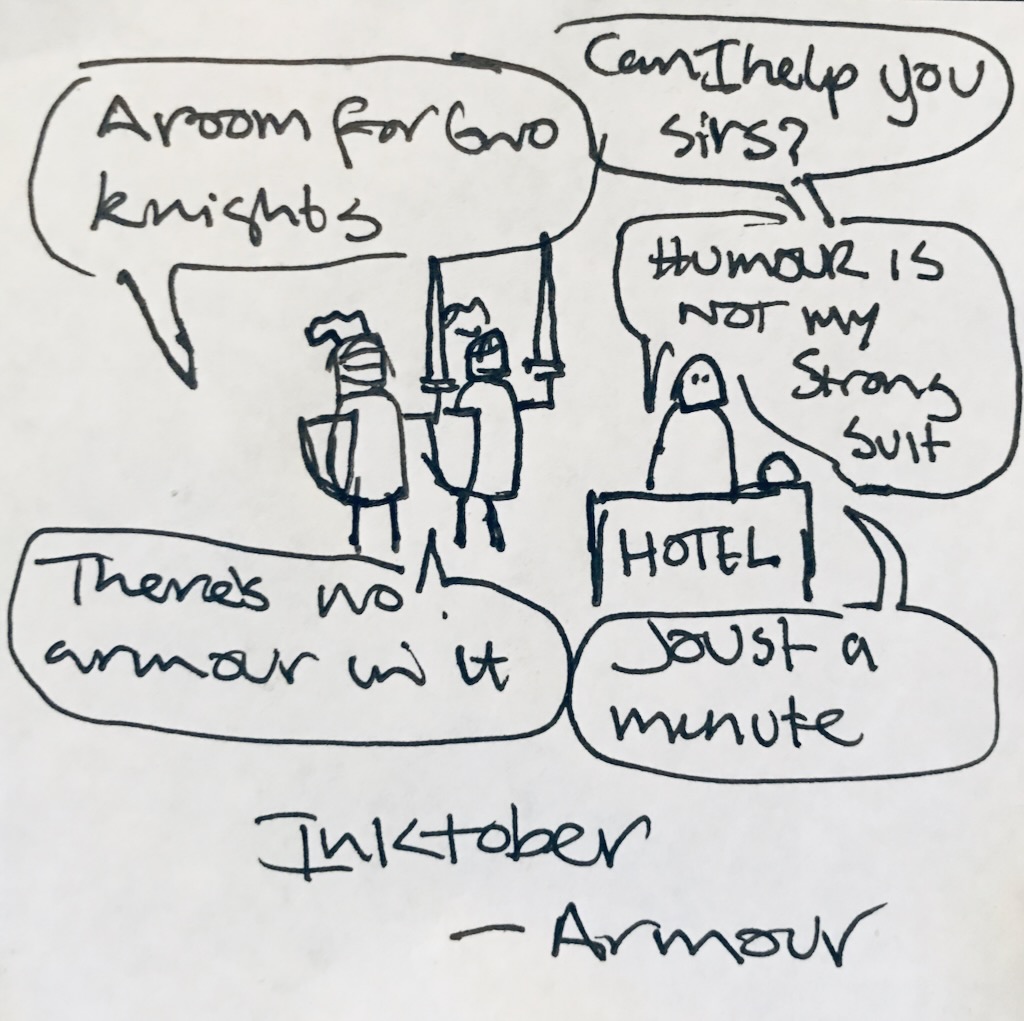 Can I help you
sirs?
A room for two
knights
Humour is
not my
strong
suit
There's no
armour in it
Joust a
minute
HOTEL
Inktober
- Armour